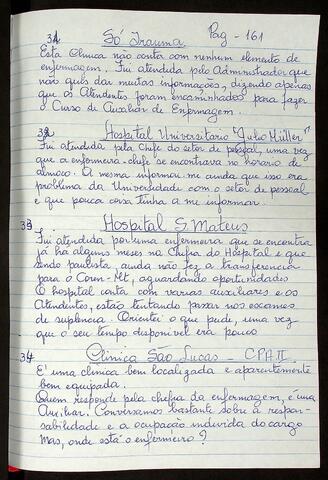 31 Só Trauma. Pag - 161
Esta Clinica não conta com nenhum elemento de
enfermagem. Fui atendida pelo Administrador que
não quis dar muitas informações, dizendo apenas
que os Atendentes foram encaminhados para fazer
o Curso de Auxiliar de Enfermagem.
32 Hospital Universitario "Julio Müller"
Fui atendida pela Chefe do setor de pessoal, uma vez
que a enfermeira-chefe se encontrava no horario de
almoço. A mesma informou me ainda que isso era
problema da Universidade com o setor de pessoal
e que pouca coisa tinha a me informar.
33 Hospital S. Mateus
Fui atendida por uma enfermeira que se encontra
já há alguns meses na Chefia do Hospital e que
sendo paulista, ainda não fez a transferencia
para o Coren-Mt, aguardando oportunidades
O hospital conta com varios auxiliares e os
Atendentes, estão tentando passar nos exames
de suplência. Orientei o que pude, uma vez
que o seu tempo disponivel era pouco
34 Clinica São Lucas - CPA II.
É uma clinica bem localizada e aparentemente
bem equipada.
Quem responde pela chefia da enfermagem, é uma
Auxiliar. Conversamos bastante sobre a respon-
sabilidade e a ocupação indevida do cargo
Mas, onde está o enfermeiro?